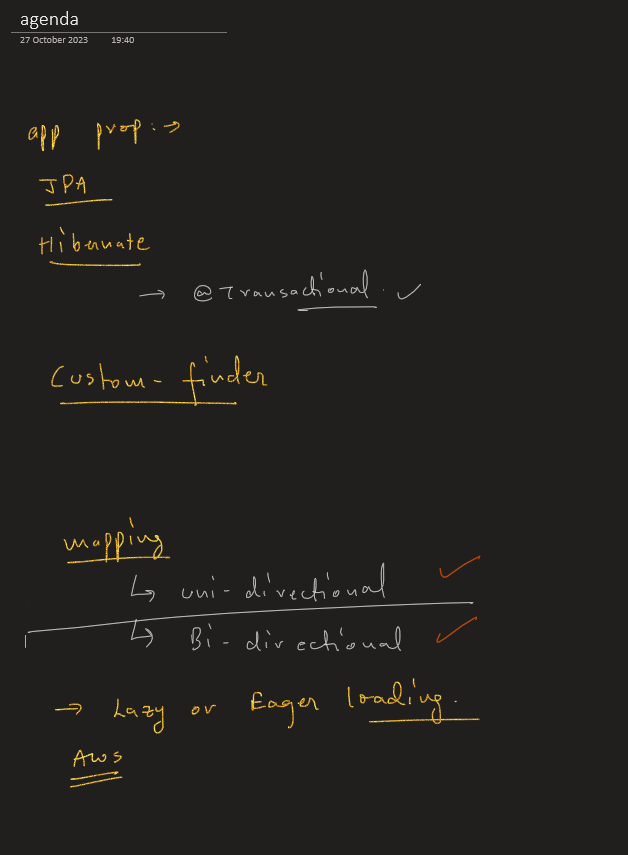 agenda
27 October 2023 19:40
app prop. →
JPA
Hibernate
→ @Transactional. ✓
Custom - finder
mapping
↳ uni-directional ✓
↳ Bi-directional ✓
→ Lazy or Eager loading.
Aws